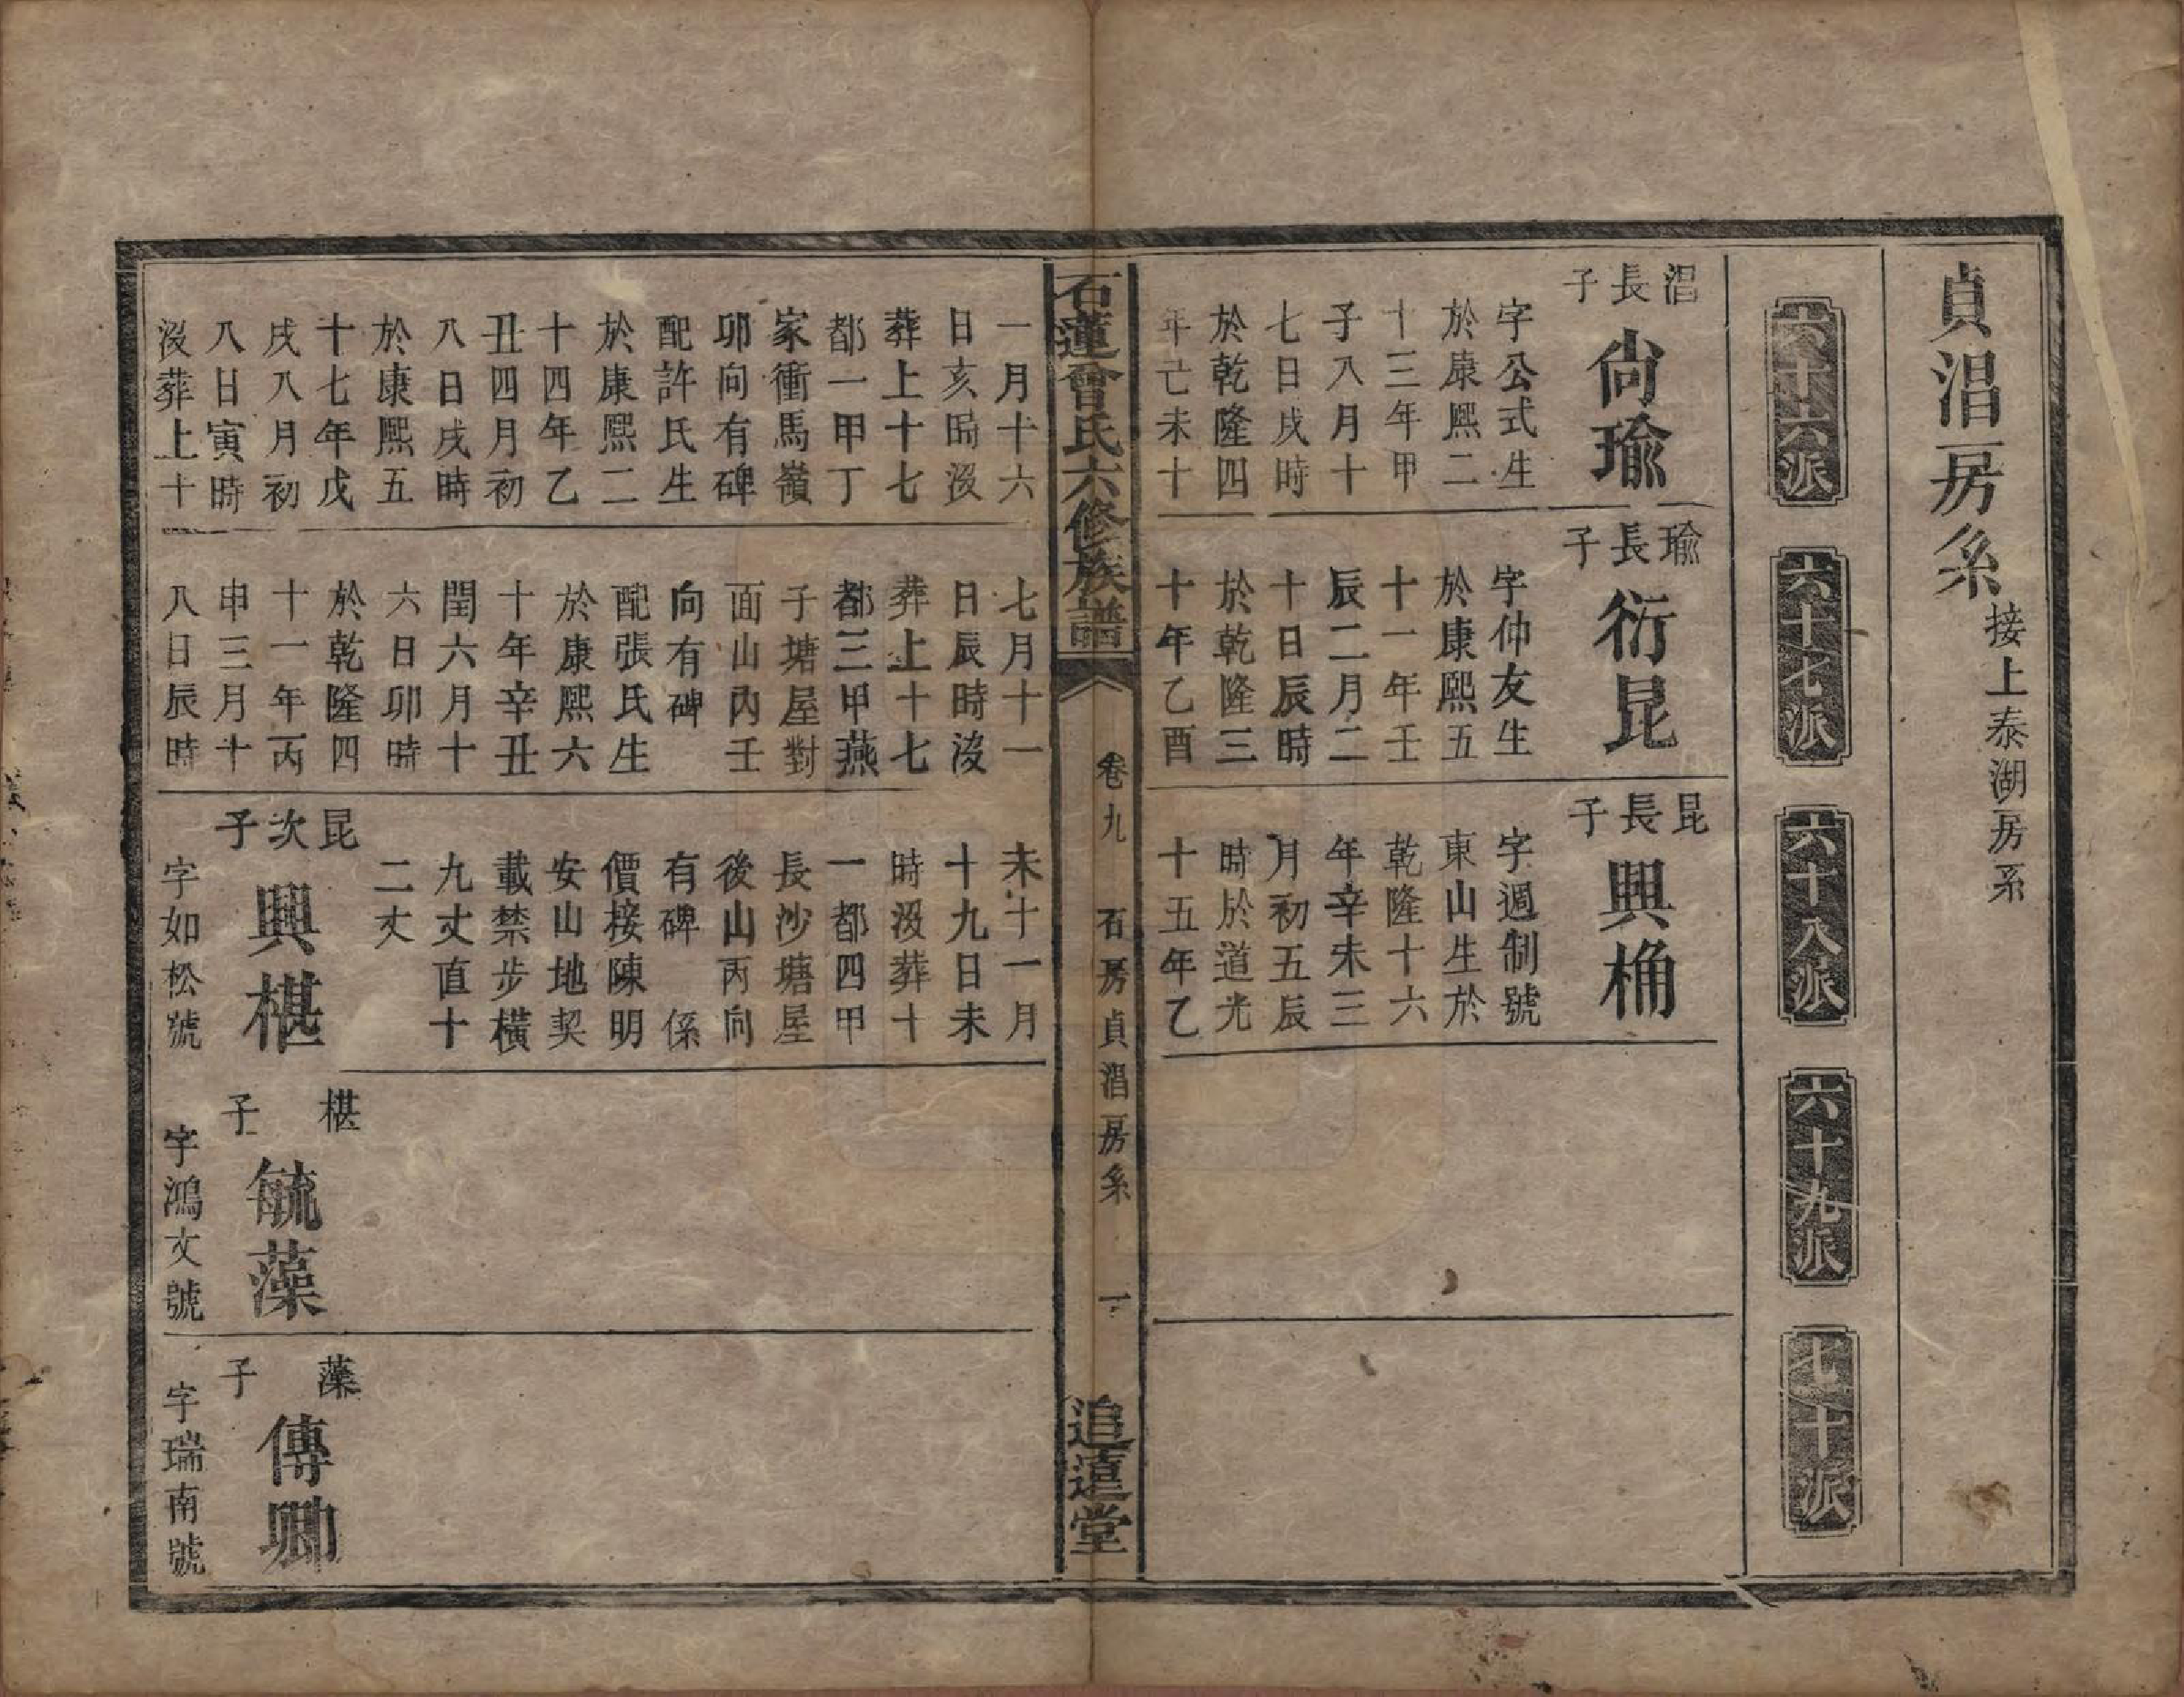 貞淐房系接上泰湖房系
六十六派
六十七派
六十八派
六十九派
七十派
淐長子
尙瑜
字公式生
於康熙二
十三年甲
子八月十
七日戌時
於乾隆四
年己未十
瑜長子
衍昆
字仲友生
於康熙五
十一年壬
辰二月二
十日辰時
於乾隆三
十年乙酉
昆長子
興桷
字週制號
東山生於
乾隆十六
年辛未三
月初五辰
時於道光
十五年乙
石蓮曾氏六修族譜
卷九
石房貞淐房系
一
追遠堂
一月十六
日亥時沒
葬上十七
都一甲丁
家衝馬嶺
卯向有碑
配許氏生
於康熙二
十四年乙
丑四月初
八日戌時
於康熙五
十七年戊
戌八月初
八日寅時
沒葬上十
七月十一
日辰時沒
葬上十七
都三甲燕
子塘屋對
面山內壬
向有碑
配張氏生
於康熙六
十年辛丑
閏六月十
六日卯時
於乾隆四
十一年丙
申三月十
八日辰時
未十一月
十九日未
時沒葬十
一都四甲
長沙塘屋
後山丙向
有碑 係
價接陳明
安山地契
載禁步橫
九丈直十
二丈
昆次子
興椹
字如松號
椹子
毓藻
字鴻文號
藻子
傳卿
字瑞南號